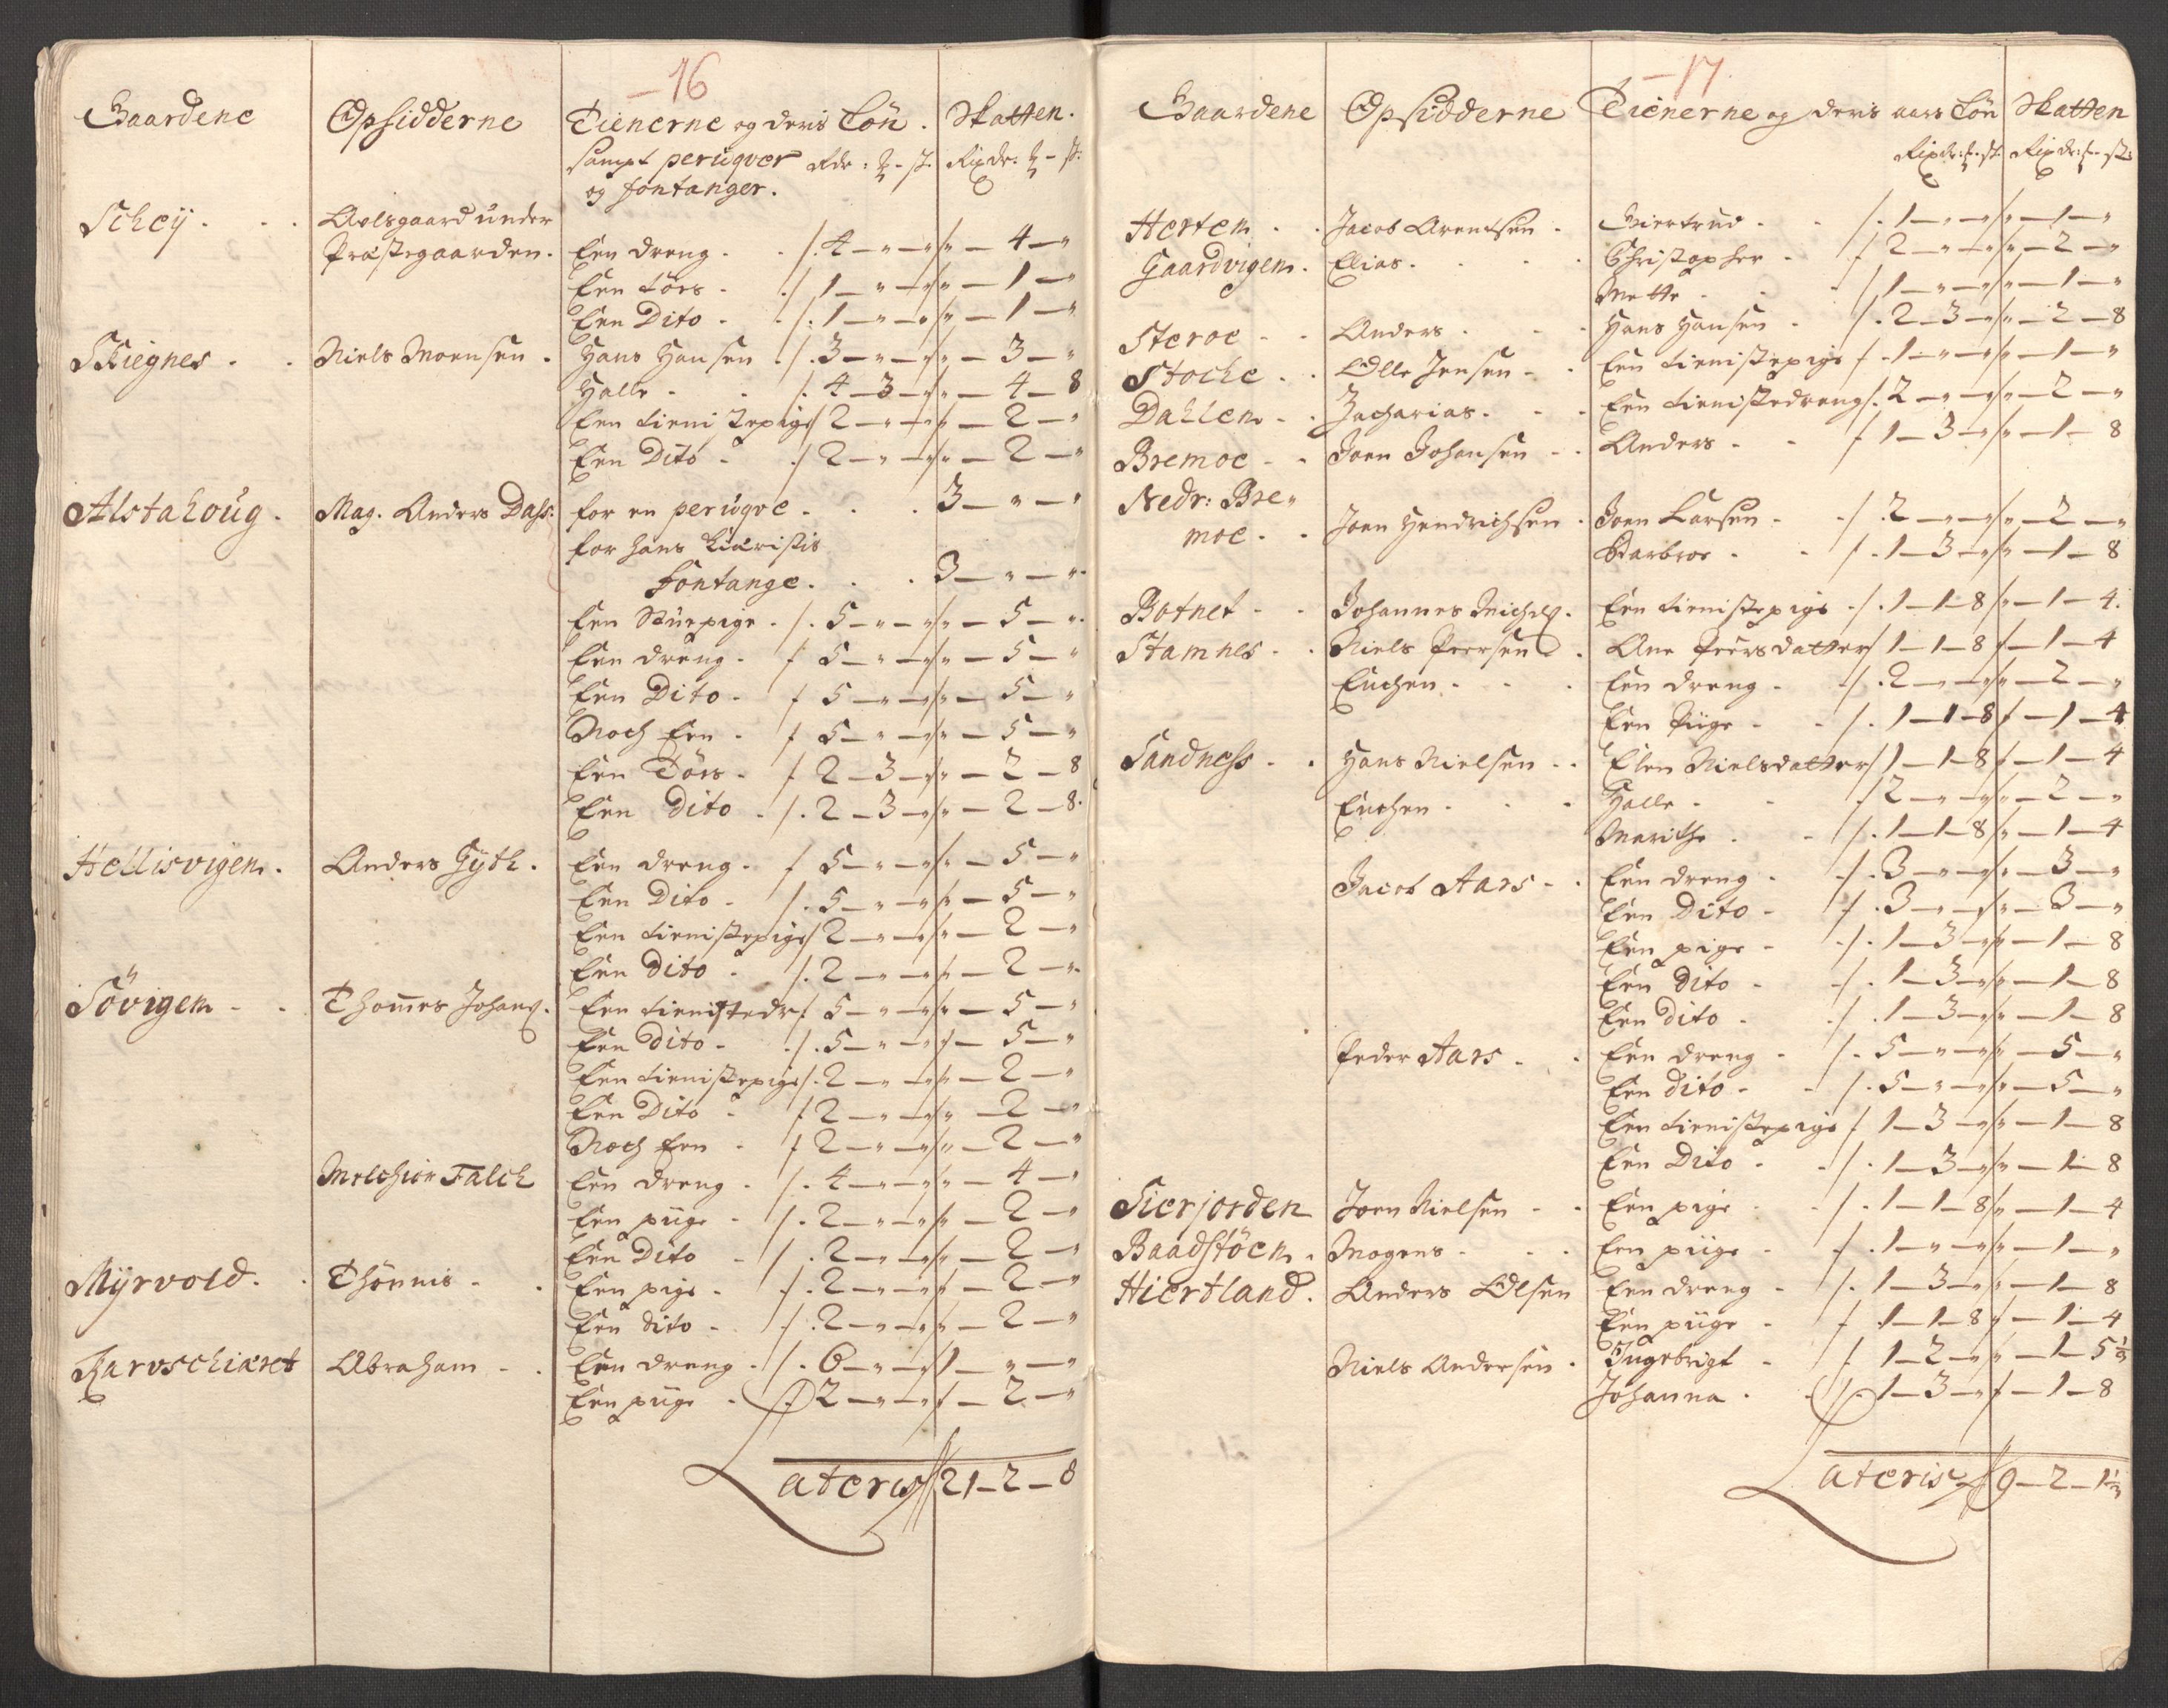 16
Gaardene Opsidderne Tienerne og deris Lön. Skatten.
sampt perüqver Rdr: ʒ - ß. Rixdr: ʒ - ß.
og fontanger.
Schey . . . Avlsgaard under
Præstegaarden. Een dreng . . /. 4 — " — " /" — 4 — "
Een törs . /. 1 — " — " /" — 1 — "
Een Dito . /. 1 — " — " /" — 1 — "
Skiegnes . . Niels Moensen . Hans Hansen . /. 3 — " — " /" — 3 — "
Halle . /. 4 — 3 — " /" — 4 — 8
Een tienistepige /. 2 — " — " /" — 2 — "
Een Dito . /. 2 — " — " /" — 2 — "
Alstahoug . Mag. Anders Dass: for en perüqve . . . 3 — " — "
for hans Kiæristis
Fontange . . . 3 — " — "
Een Stüepige . /. 5 — " — " /" — 5 — "
Een dreng . /. 5 — " — " /" — 5 — "
Een Dito . /. 5 — " — " /" — 5 — "
Noch Een . /. 5 — " — " /" — 5 — "
Een Törs . /. 2 — 3 — " /" — 2 — 8
Een Dito . /. 2 — 3 — " /" — 2 — 8.
Hellisvigen . Anders Gyth . Een dreng . /. 5 — " — " /" — 5 — "
Een Dito . /. 5 — " — " /" — 5 — "
Een tienistepige /. 2 — " — " /" — 2 — "
Een Dito . /. 2 — " — " /" — 2 — "
Sövigen . . Thomes Johans. Een tienistedr: /. 5 — " — " /" — 5 — "
Een Dito . /. 5 — " — " /" — 5 — "
Een tienistepige /. 2 — " — " /" — 2 — "
Een Dito . /. 2 — " — " /" — 2 — "
Noch Een . /. 2 — " — " /" — 2 — "
Melchior Falch Een dreng . /. 4 — " — " /" — 4 — "
Een piige . /. 2 — " — " /" — 2 — "
Een Dito . /. 2 — " — " /" — 2 — "
Myrvold . . Thönnis . . Een pige . /. 2 — " — " /" — 2 — "
Een dito . /. 2 — " — " /" — 2 — "
Karvschiæret Abraham . . Een dreng . /. 6 — " — " / 1 — " — "
Een piige . /. 2 — " — " /" — 2 — "
Lateris 21 — 2 — 8
17
Gaardene Opsidderne Tienerne og deris aars Lön Skatten
Rixdr: ʒ - ß. Rixdr: ʒ - ß.
Herten . . Jacob Arentsen . Giertrud . . /. 1 — " — " /" — 1 — "
Gaardvigen . Elias . . . Christopher . /. 2 — " — " /" — 2 — "
Mette . /. 1 — " — " /" — 1 — "
Steroe . . Anders . . Hans Hansen . /. 2 — 3 — " /" — 2 — 8
Stocke . . Olle Jensen . . Een tienistepige /. 1 — " — " /" — 1 — "
Dahlen . . Zacharias . . Een tienistedreng /. 2 — " — " /" — 2 — "
Bremoe . . Joen Johansen . . Anders . . /. 1 — 3 — " /" — 1 — 8
Nedr: Bre"
moe . . Joen Hendrichsen . Joen Larsen . /. 2 — " — " /" — 2 — "
Barbroe . /. 1 — 3 — " /" — 1 — 8
Botnet . . Johannes Michels. Een tienistepige . /. 1 — 1 — 8 /" — 1 — 4.
Stamnes . . Niels Peersen . Ane Peersdatter /. 1 — 1 — 8 /" — 1 — 4
Enchen . . . Een dreng . /. 2 — " — " /" — 2 — "
Een Piige . /. 1 — 1 — 8 /" — 1 — 4
Sandness . . Hans Nielsen . . Elen Nielsdatter /. 1 — 1 — 8 /" — 1 — 4
Enchen . . . Halle . /. 2 — " — " /" — 2 — "
Marithe . /. 1 — 1 — 8 /" — 1 — 4
Jacob Aars . . Een dreng . /. 3 — " — " /" — 3 — "
Een Dito . /. 3 — " — " /" — 3 — "
Een pige . /. 1 — 3 — " /" — 1 — 8
Een Dito . /. 1 — 3 — " /" — 1 — 8
Een dito . /. 1 — 3 — " /" — 1 — 8
Peder Aars . . Een dreng . /. 5 — " — " /" — 5 — "
Een Dito . /. 5 — " — " /" — 5 — "
Een tienistepige /. 1 — 3 — " /" — 1 — 8
Een Dito . /. 1 — 3 — " /" — 1 — 8
Sierjorden Joen Nielsen . . Een pige . /. 1 — 1 — 8 /" — 1 — 4
Baadstöen . Mogens . . . Een piige . /. 1 — " — " /" — 1 — "
Hiertland . Anders Olsen Een dreng . /. 1 — 3 — " /" — 1 — 8
Een piige . /. 1 — 1 — 8 /" — 1 — 4
Niels Andersen . Ingebrigt . /. 1 — 2 — " /" — 1 — 5 1/3
Johanna . /. 1 — 3 — " /" — 1 — 8
Lateris 9 — 2 — 1 1/3